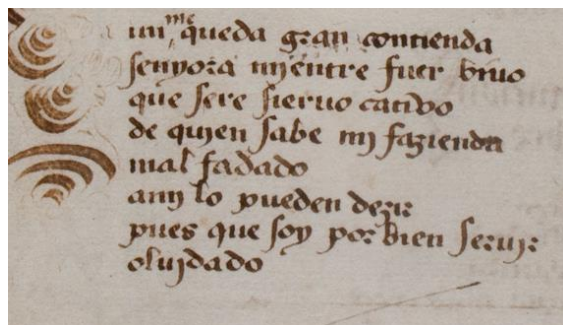 un me queda gran contienda
senyora mjentre fuer biuo
que sere sieruo catiuo
de qujen sabe mj fazienda
mal fadado
amj lo pueden dezir
pues que soy por bien serujr
olujdado